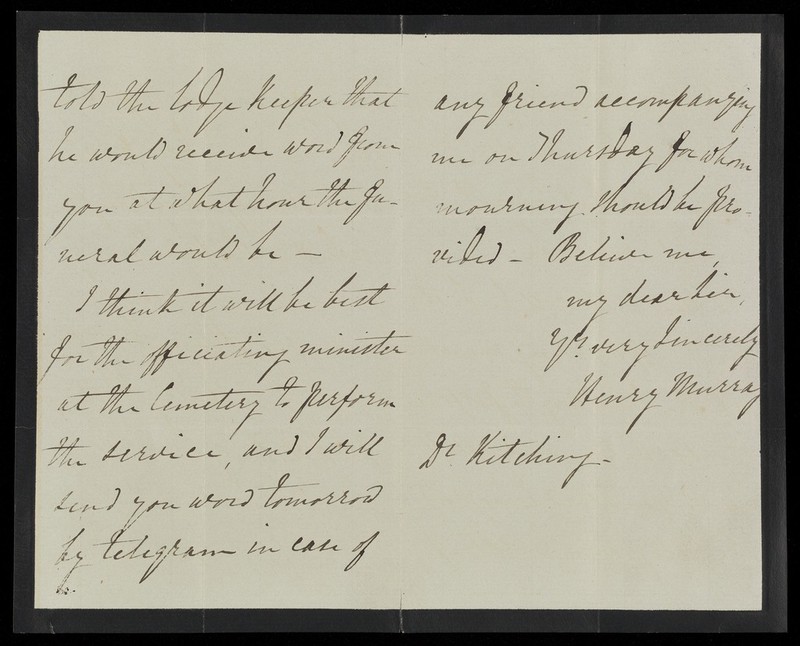 told the lodge keeper that
he would receive word from
you at what hour the fu-
neral would be —
I think it will be best
for the officiating minister
at the Cemetery to perform
the service, and I will
send you word tomorrow
by telegram in case of
any friend accompanying
me on Thursday for whom
mourning should be pro-
vided – Believe me,
my dear Sir,
Yrs. very sincerely
Henry Murray
Dr Kitching –